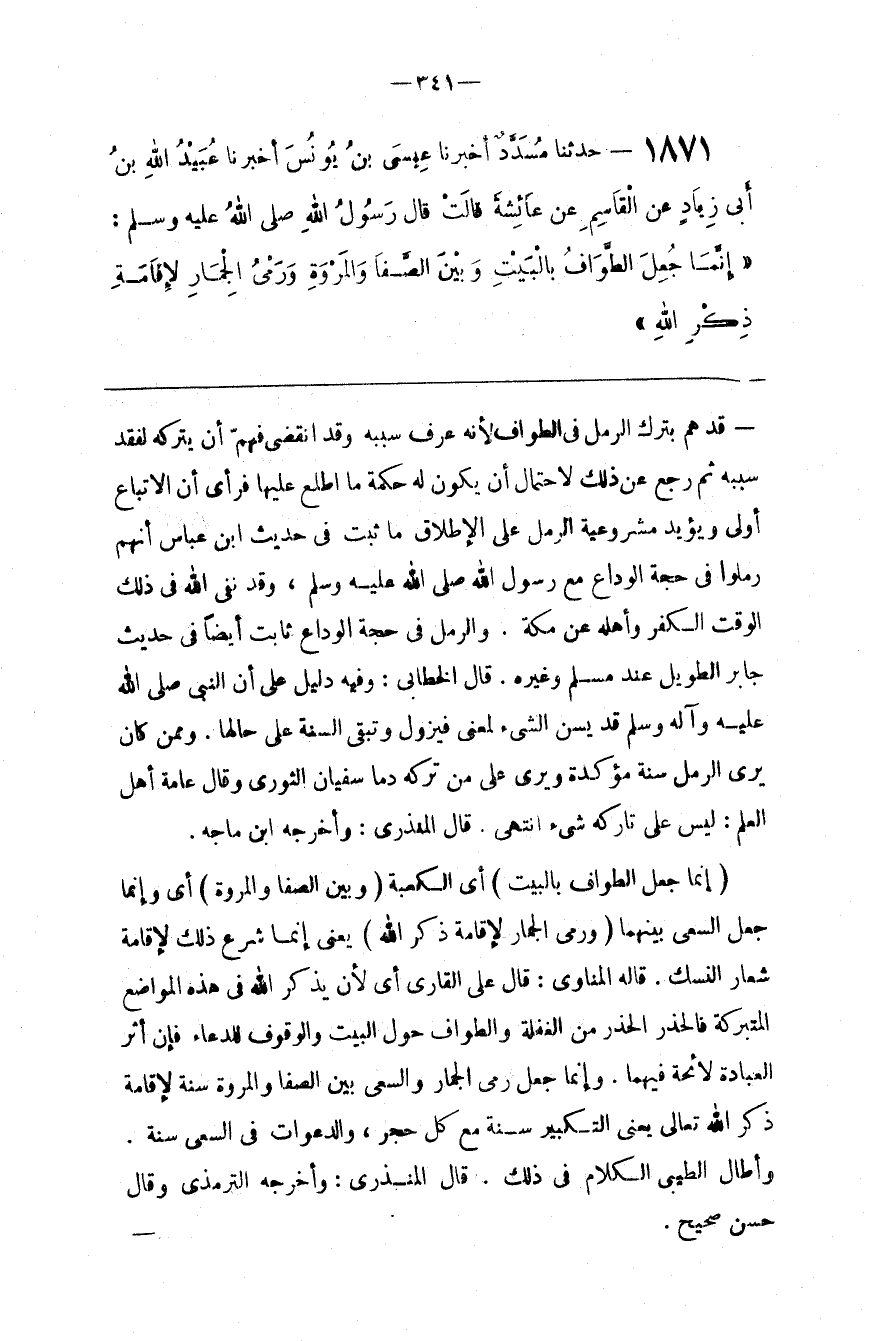 —٣٤١—
١٨٧١ — حدثنا مُسَدَّدٌ أخبرنا عِيسَى بنُ يُونُسَ أخبرنا عُبَيْدُ اللهِ بنُ
أَبى زِيادٍ عن الْقَاسِمِ عن عَائِشَةَ قالَتْ قال رَسُولُ اللهِ صلى اللهُ عليه وسلم :
« إِنَّمَا جُعِلَ الطَّوَافُ بالْبَيْتِ وَبَيْنَ الصَّفاَ وَالمَرْوَةِ وَرَمْىُ الْجِمَارِ لإِقَامَةِ
ذِكْرِ اللهِ »
— قد هم بترك الرمل فى الطواف لأنه عرف سببه وقد انقضى فهمّ أن يتركه لفقد
سببه ثم رجع عن ذلك لاحتمال أن يكون له حكمة ما اطلع عليها فرأى أن الاتباع
أولى ويؤيد مشروعية الرمل على الإطلاق ما ثبت فى حديث ابن عباس أنهم
رملوا فى حجة الوداع مع رسول الله صلى الله عليه وسلم ، وقد نفى الله فى ذلك
الوقت الكفر وأهله عن مكة . والرمل فى حجة الوداع ثابت أيضاً فى حديث
جابر الطويل عند مسلم وغيره . قال الخطابى : وفيه دليل على أن النبى صلى الله
عليه وآله وسلم قد يسن الشىء لمعنى فيزول وتبقى السنة على حالها . وممن كان
يرى الرمل سنة مؤكدة ويرى على من تركه دما سفيان الثورى وقال عامة أهل
العلم : ليس على تاركه شىء انتهى . قال المنذرى : وأخرجه ابن ماجه .
( إنما جعل الطواف بالبيت ) أى الكعبة ( وبين الصفا والمروة ) أى وإنما
جعل السعى بينهما ( ورمى الجمار لإقامة ذكر الله ) يعنى إنما شرع ذلك لإقامة
شعار النسك . قاله المناوى : قال على القارى أى لأن يذكر الله فى هذه المواضع
المتبركة فالحذر الحذر من الغفلة والطواف حول البيت والوقوف للدعاء فإن أثر
العبادة لائحة فيهما . وإنما جعل رمى الجمار والسعى بين الصفا والمروة سنة لإقامة
ذكر الله تعالى يعنى التكبير سنة مع كل حجر ، والدعوات فى السعى سنة .
وأطال الطيبى الكلام فى ذلك . قال المنذرى : وأخرجه الترمذى وقال
حسن صحيح . —